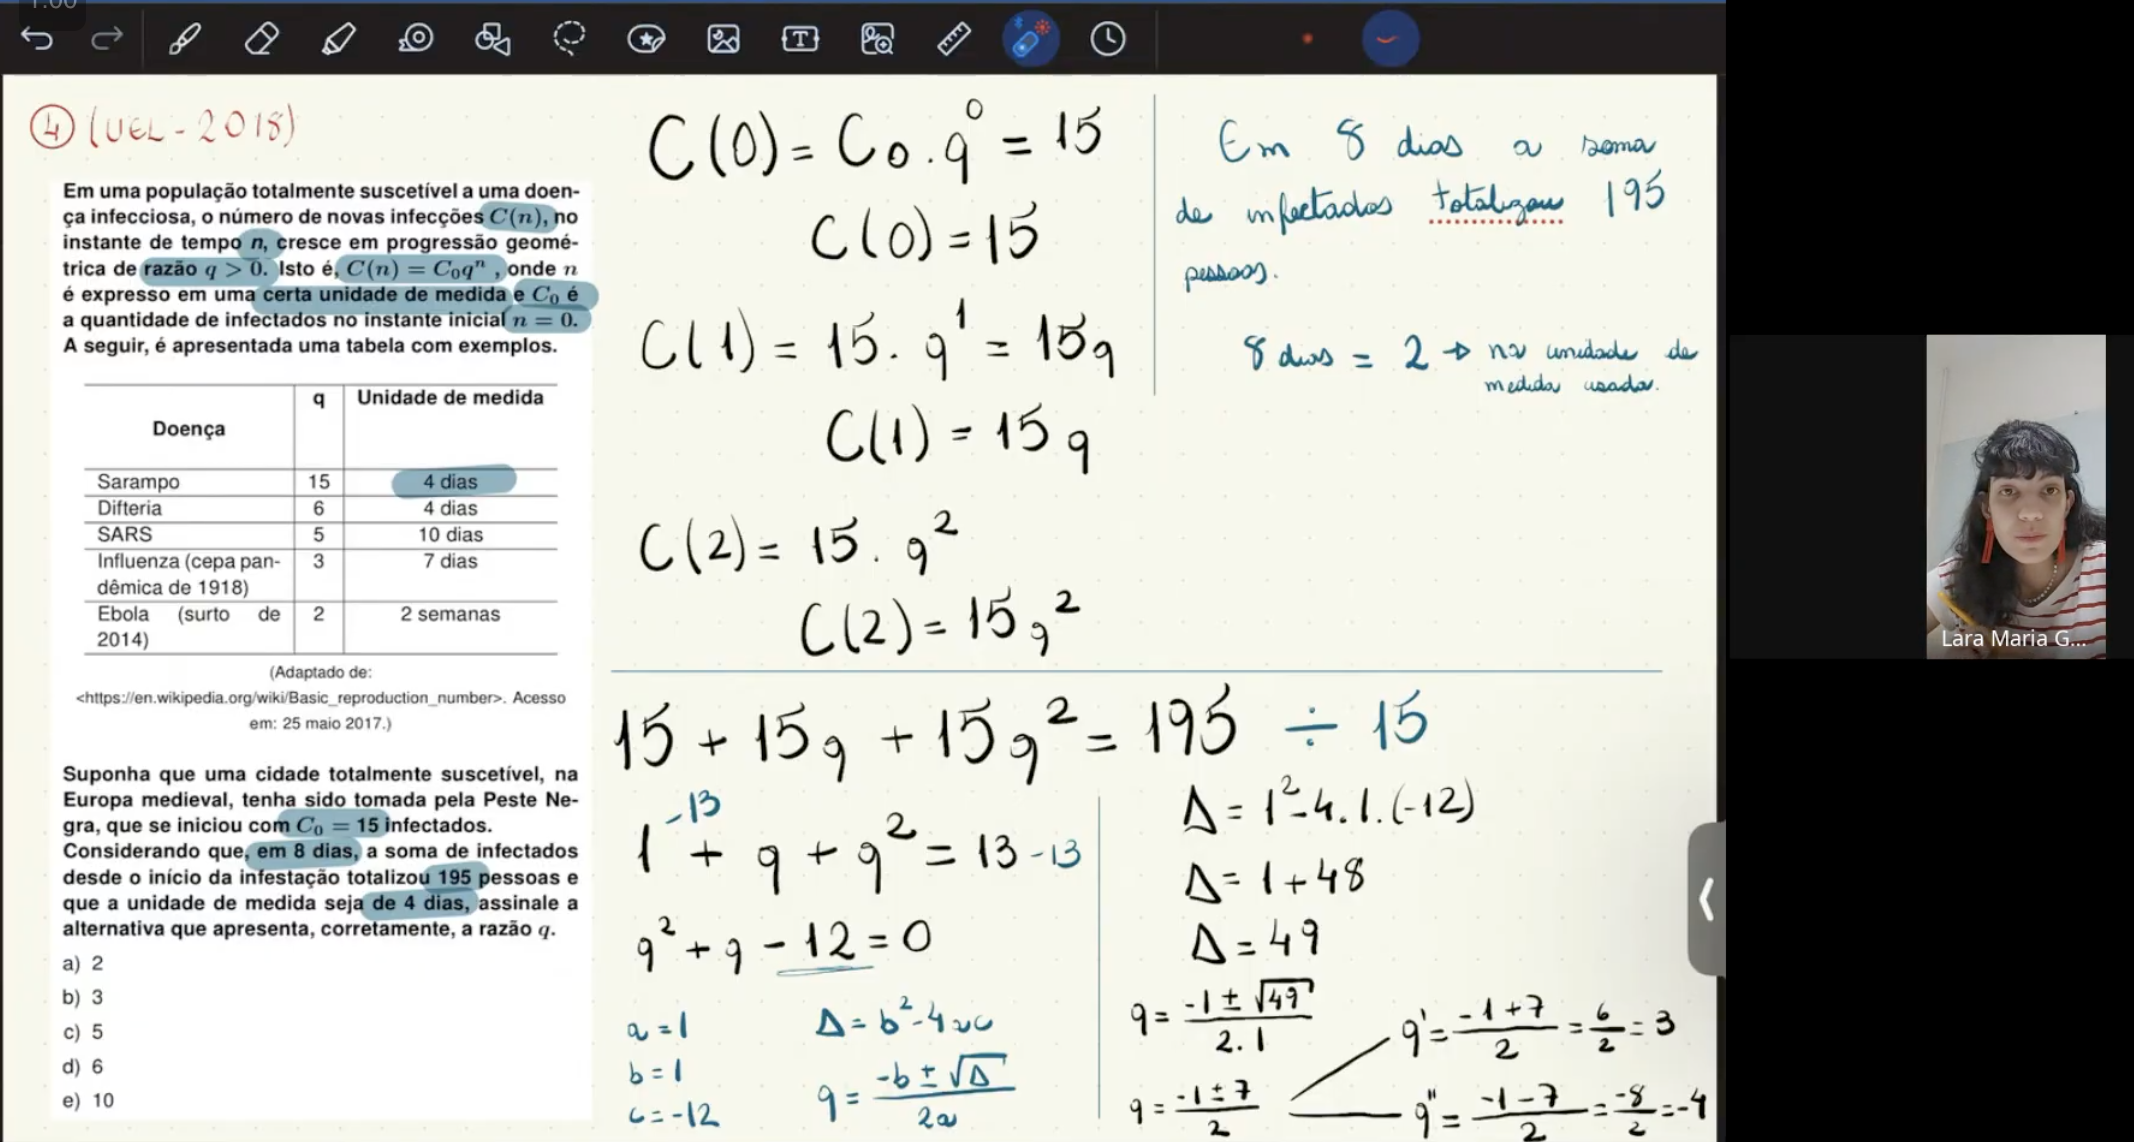 1:00
④ (UEL - 2018)
Em uma população totalmente suscetível a uma doen-
ça infecciosa, o número de novas infecções C(n), no
instante de tempo n, cresce em progressão geomé-
trica de razão q > 0. Isto é, C(n) = C₀qⁿ , onde n
é expresso em uma certa unidade de medida e C₀ é
a quantidade de infectados no instante inicial n = 0.
A seguir, é apresentada uma tabela com exemplos.
Doença q Unidade de medida
Sarampo 15 4 dias
Difteria 6 4 dias
SARS 5 10 dias
Influenza (cepa pan- 3 7 dias
dêmica de 1918)
Ebola (surto de 2 2 semanas
2014)
(Adaptado de:
<https://en.wikipedia.org/wiki/Basic_reproduction_number>. Acesso
em: 25 maio 2017.)
Suponha que uma cidade totalmente suscetível, na
Europa medieval, tenha sido tomada pela Peste Ne-
gra, que se iniciou com C₀ = 15 infectados.
Considerando que, em 8 dias, a soma de infectados
desde o início da infestação totalizou 195 pessoas e
que a unidade de medida seja de 4 dias, assinale a
alternativa que apresenta, corretamente, a razão q.
a) 2
b) 3
c) 5
d) 6
e) 10
C(0) = C₀ . q⁰ = 15
C(0) = 15
C(1) = 15 . q¹ = 15q
C(1) = 15q
C(2) = 15 . q²
C(2) = 15q²
Em 8 dias a soma
de infectados totalizou 195
pessoas.
8 dias = 2 → na unidade de
medida usada.
15 + 15q + 15q² = 195 ÷ 15
-13
1 + q + q² = 13 -13
q² + q - 12 = 0
a = 1
b = 1
c = -12
Δ = b² - 4ac
q = -b ± √Δ / 2a
Δ = 1² - 4 . 1 . (-12)
Δ = 1 + 48
Δ = 49
q = -1 ± √49 / 2 . 1
q = -1 ± 7 / 2
q' = -1 + 7 / 2 = 6 / 2 = 3
q" = -1 - 7 / 2 = -8 / 2 = -4
Lara Maria G...